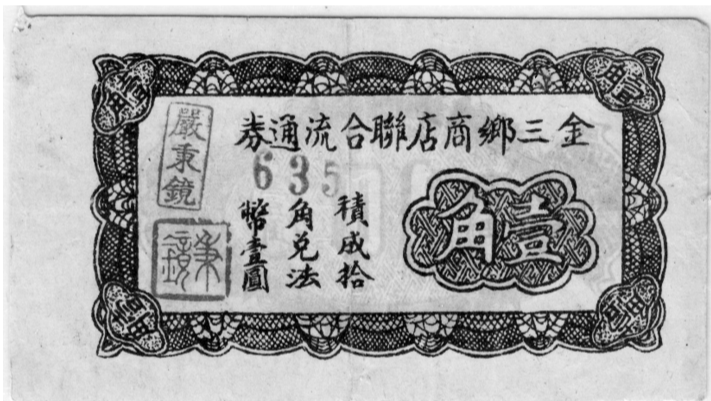 金三鄉商店聯合流通券
壹角
積成拾
角兑法
幣壹圓
635
嚴秉鏡
秉鏡
壹角
壹角
壹角
壹角